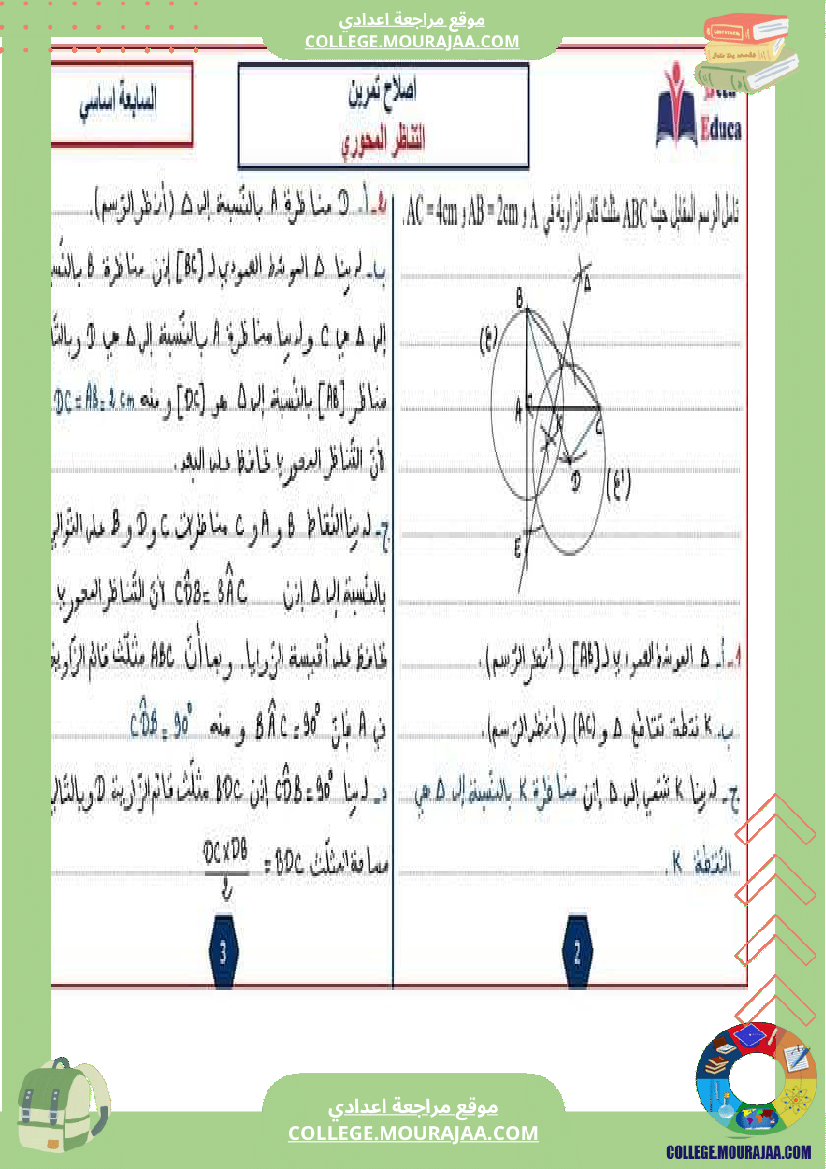 موقع مراجعة اعدادي
COLLEGE.MOURAJAA.COM
Educa
اصلاح تمرين
التناظر المحوري
السابعة اساسي
تامل الرسم المقابل حيث ABC مثلث قائم الزاوية في A و AB = 2cm و AC = 4cm .
B
Δ
A
C
D
E
1ـ أـ Δ الموسّط العمودي لـ [AB] ( أنظر الرّسم).
بـ K نقطة تقاطع Δ و (AC) (أنظر الرّسم).
جـ لدينا K تنتمي إلى Δ إذن مناظرة K بالنّسبة إلى Δ هي
النّقطة K .
2
2ـ أـ D مناظرة A بالنّسبة إلى Δ (أنظر الرّسم).
بـ لدينا Δ الموسّط العمودي لـ [BC] إذن مناظرة B
إلى Δ هي C ولدينا مناظرة A بالنّسبة إلى Δ هي D
مناظر [AB] بالنّسبة إلى Δ هو [DC] ومنه DC = AB = 2 cm
لأنّ التّناظر المحوري يحافظ على البعد.
جـ لدينا النّقاط B و A و C مناظرات C و D و B على التّوالي
بالنّسبة إلى Δ إذن CD̂B = BÂC لأنّ التّناظر المحوري
يحافظ على أقيسة الزّوايا. وبما أنّ ABC مثلّث قائم الزّاوية
في A فإنّ BÂC = 90° ومنه CD̂B = 90°
دـ لدينا CD̂B = 90° إذن BDC مثلّث قائم الزّاوية D
مساحة المثلّث BDC = DC×DB / 2
3
موقع مراجعة اعدادي
COLLEGE.MOURAJAA.COM
COLLEGE.MOURAJAA.COM